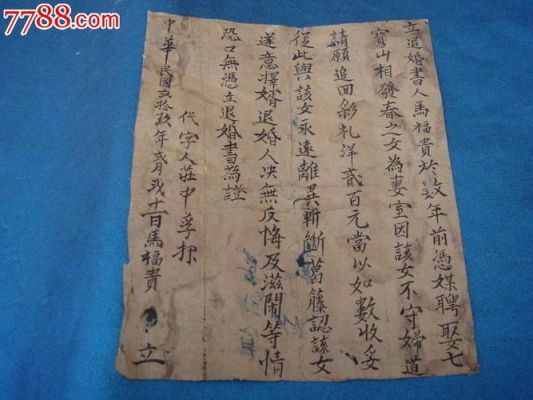 7788.com
立退婚書人馬福貴於數年前憑媒聘娶七
寳山相發春之女為妻室因該女不守婦道
請願追回彩礼洋貳百元當以如數收妥
從此與該女永遠離異斬斷葛籐認該女
遂意擇婿退婚人决無反悔及滋鬧等情
恐口無憑立退婚書為證
代字人莊中孚押
中華民國叁拾
年貳月貳十一日馬福貴 立